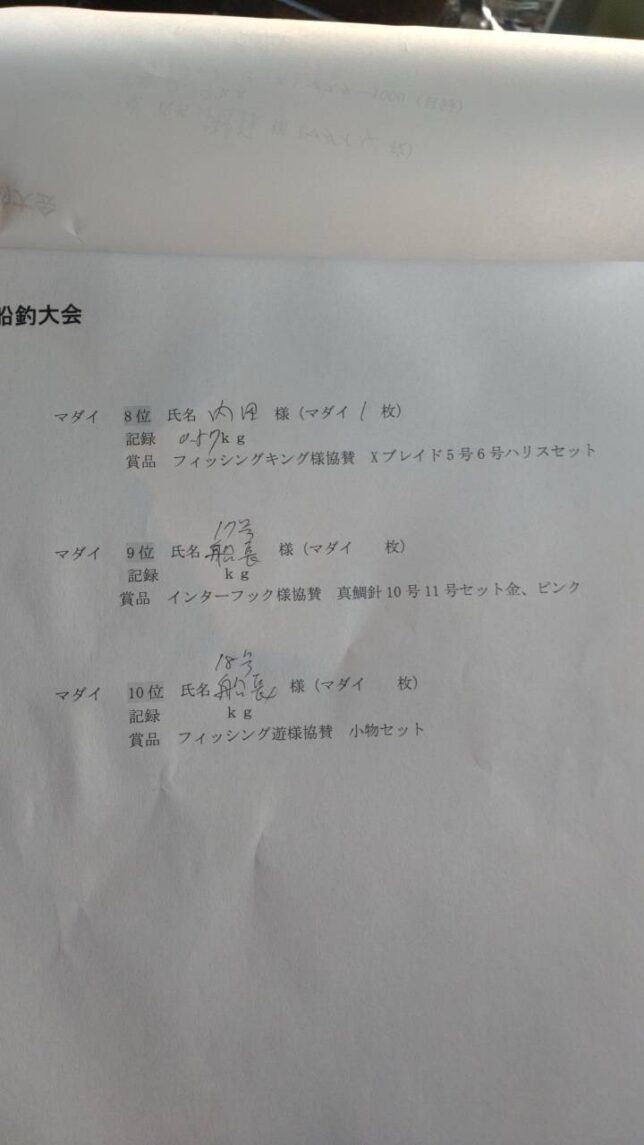 船釣大会
マダイ 8位 氏名 内田 様（マダイ 1 枚）
記録 0.57kg
賞品 フィッシングキング様協賛 Xブレイド5号6号ハリスセット
17号
マダイ 9位 氏名 船長 様（マダイ 枚）
記録 kg
賞品 インターフック様協賛 真鯛針10号11号セット金、ピンク
18号
マダイ 10位 氏名 船長 様（マダイ 枚）
記録 kg
賞品 フィッシング遊様協賛 小物セット